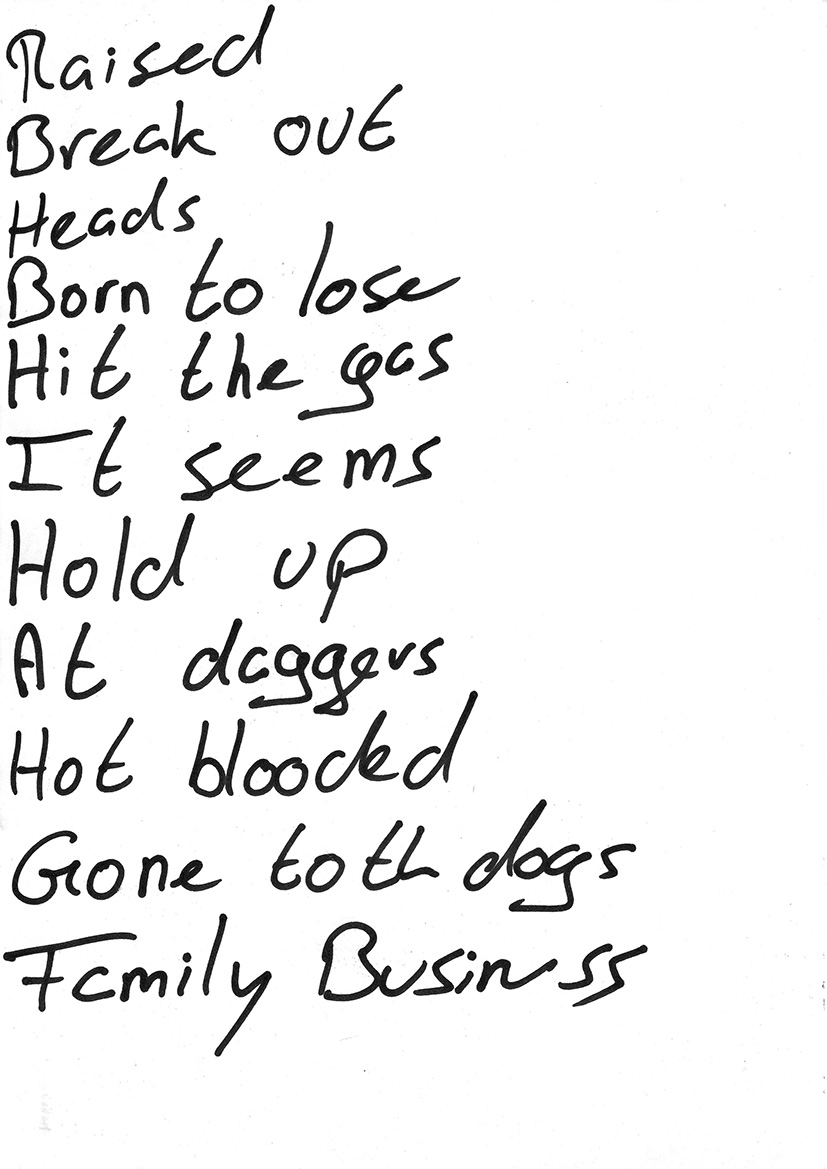 Raised
Break out
Heads
Born to lose
Hit the gas
It seems
Hold up
At daggers
Hot blooded
Gone to th dogs
Family Business